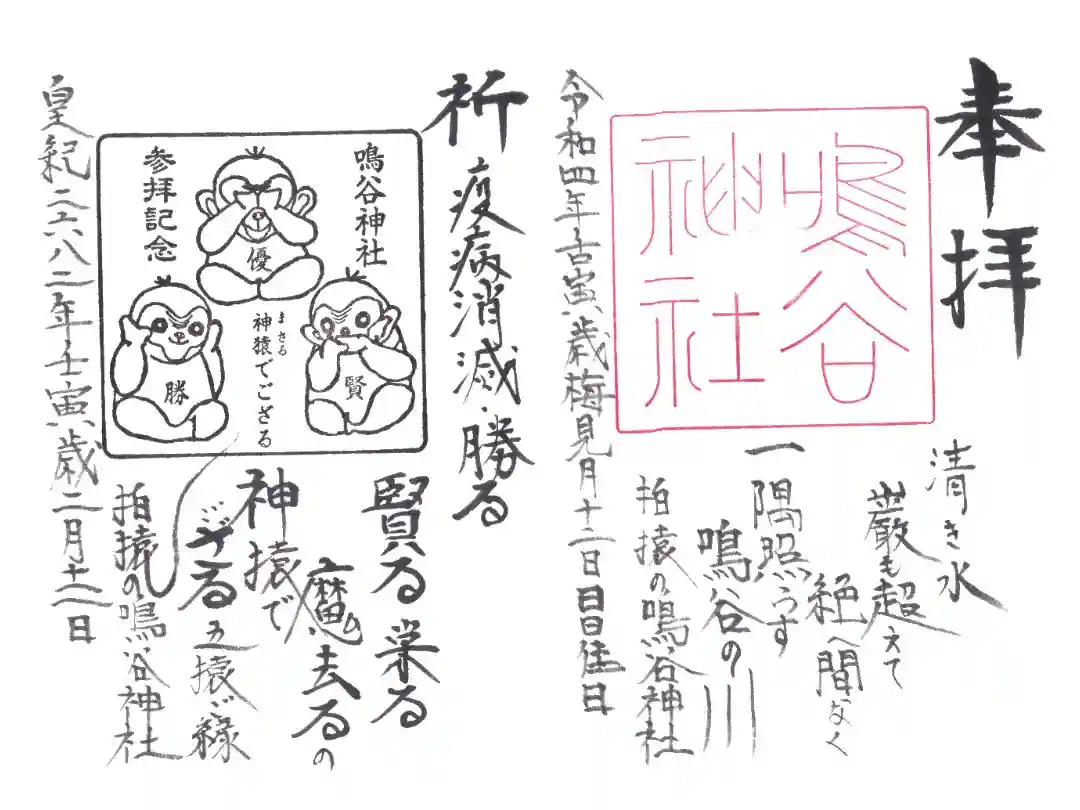 奉拝
鳴谷
神社
清き水
巌も超えて
絶へ間なく
一隅照らす
鳴谷の川
拍猿の鳴谷神社
令和四年壬寅歳梅見月十二日日日佳日
祈 疫病消滅・勝る
鳴谷神社
優
賢
神猿でござる
まさる
勝
参拝記念
賢る 栄る
魔去るの
神猿で
ござる 五猿ご縁
拍猿の鳴谷神社
皇紀二六八二年壬寅歳二月十二日